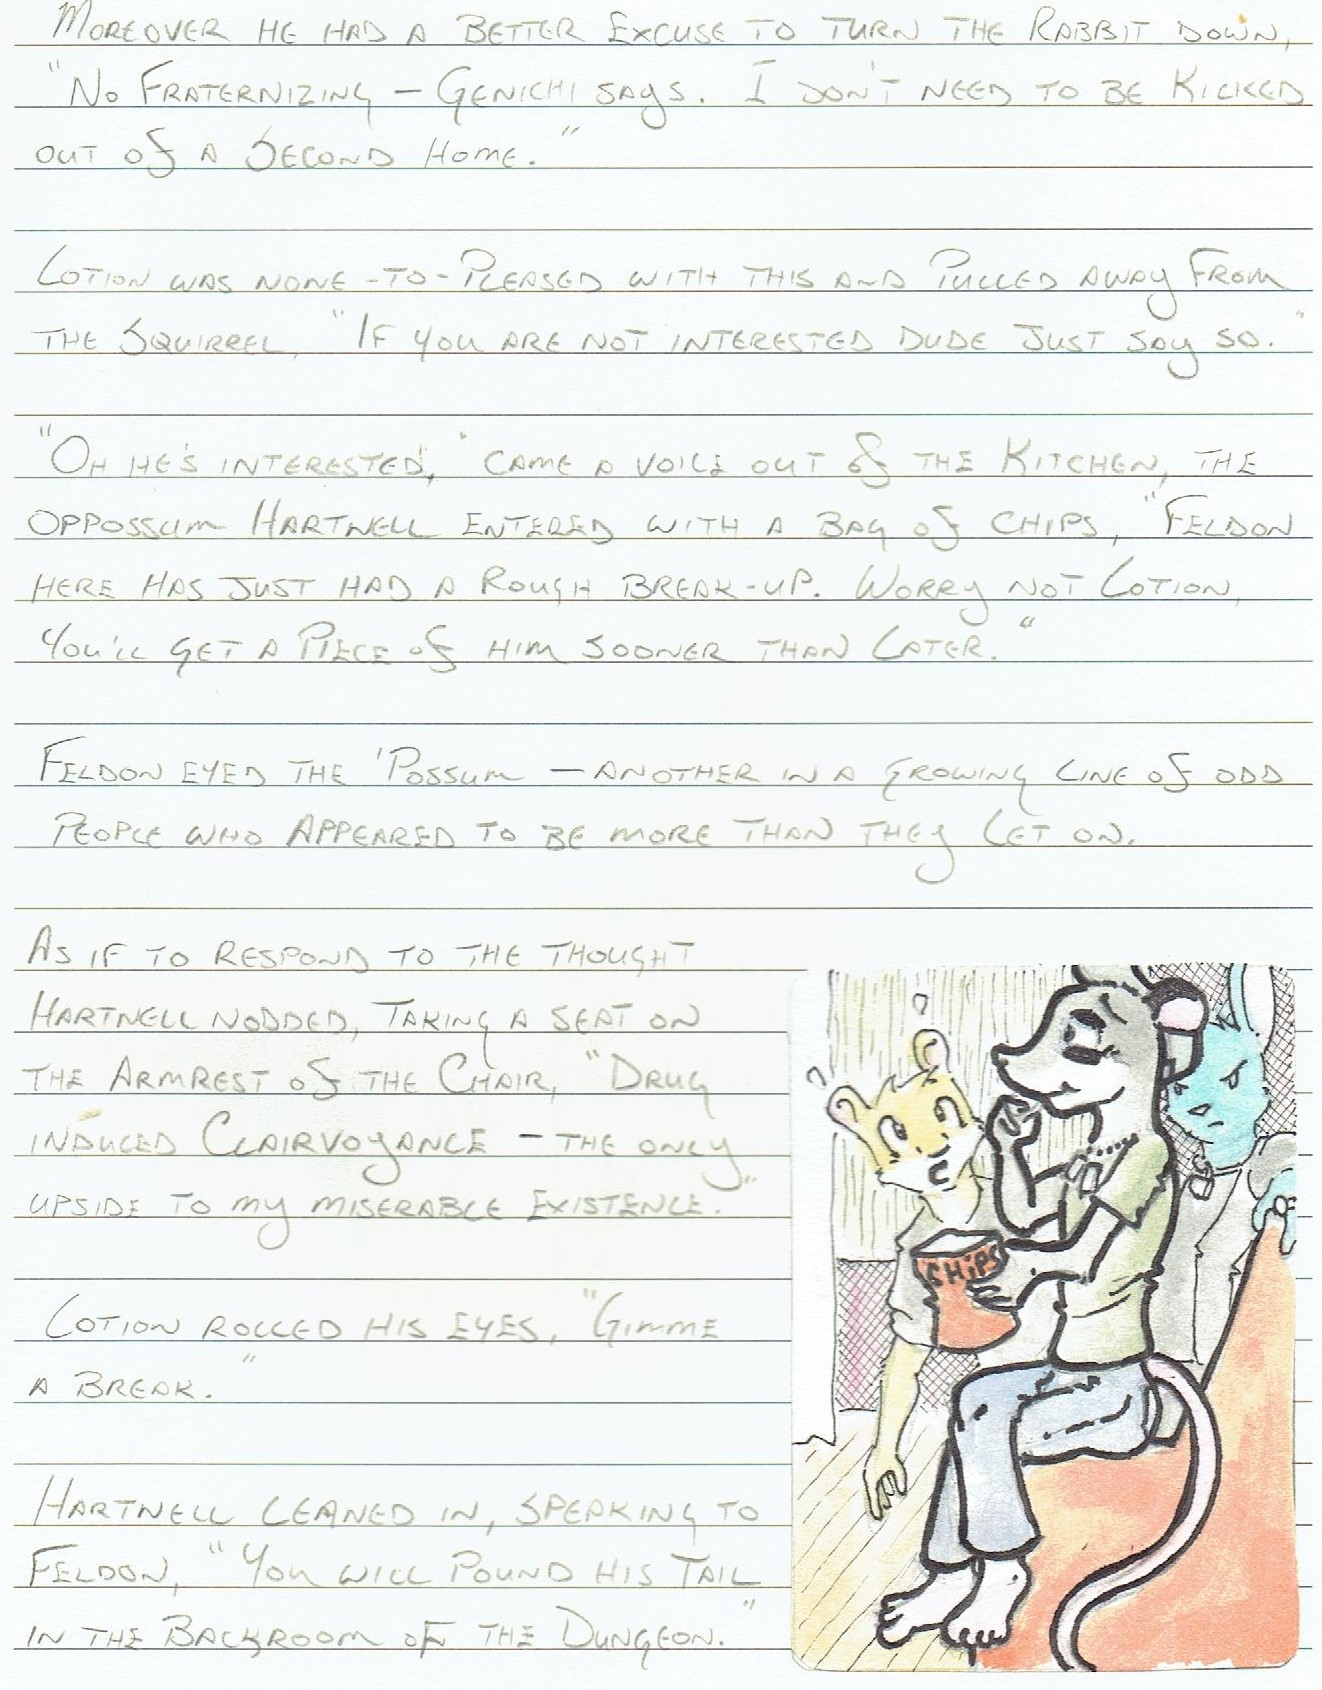 Moreover he had a better excuse to turn the Rabbit down,
"No Fraternizing – Genichi says. I don't need to be kicked
out of a second home."
Lotion was none-to-pleased with this and pulled away from
the squirrel, "If you are not interested dude just say so."
"Oh he's interested," came a voice out of the kitchen, the
oppossum Hartwell entered with a bag of chips, "Feldon
here has just had a rough break-up. Worry not Lotion,
you'll get a piece of him sooner than later."
Feldon eyed the 'possum – another in a growing line of odd
people who appeared to be more than they let on.
As if to respond to the thought
Hartnell nodded, taking a seat on
the armrest of the chair, "Drug
induced clairvoyance – the only
upside to my miserable existence."
Lotion rolled his eyes, "Gimme
a break."
Hartnell leaned in, speaking to
Feldon, "You will pound his tail
in the backroom of the Dungeon."
?
?
CHiPS